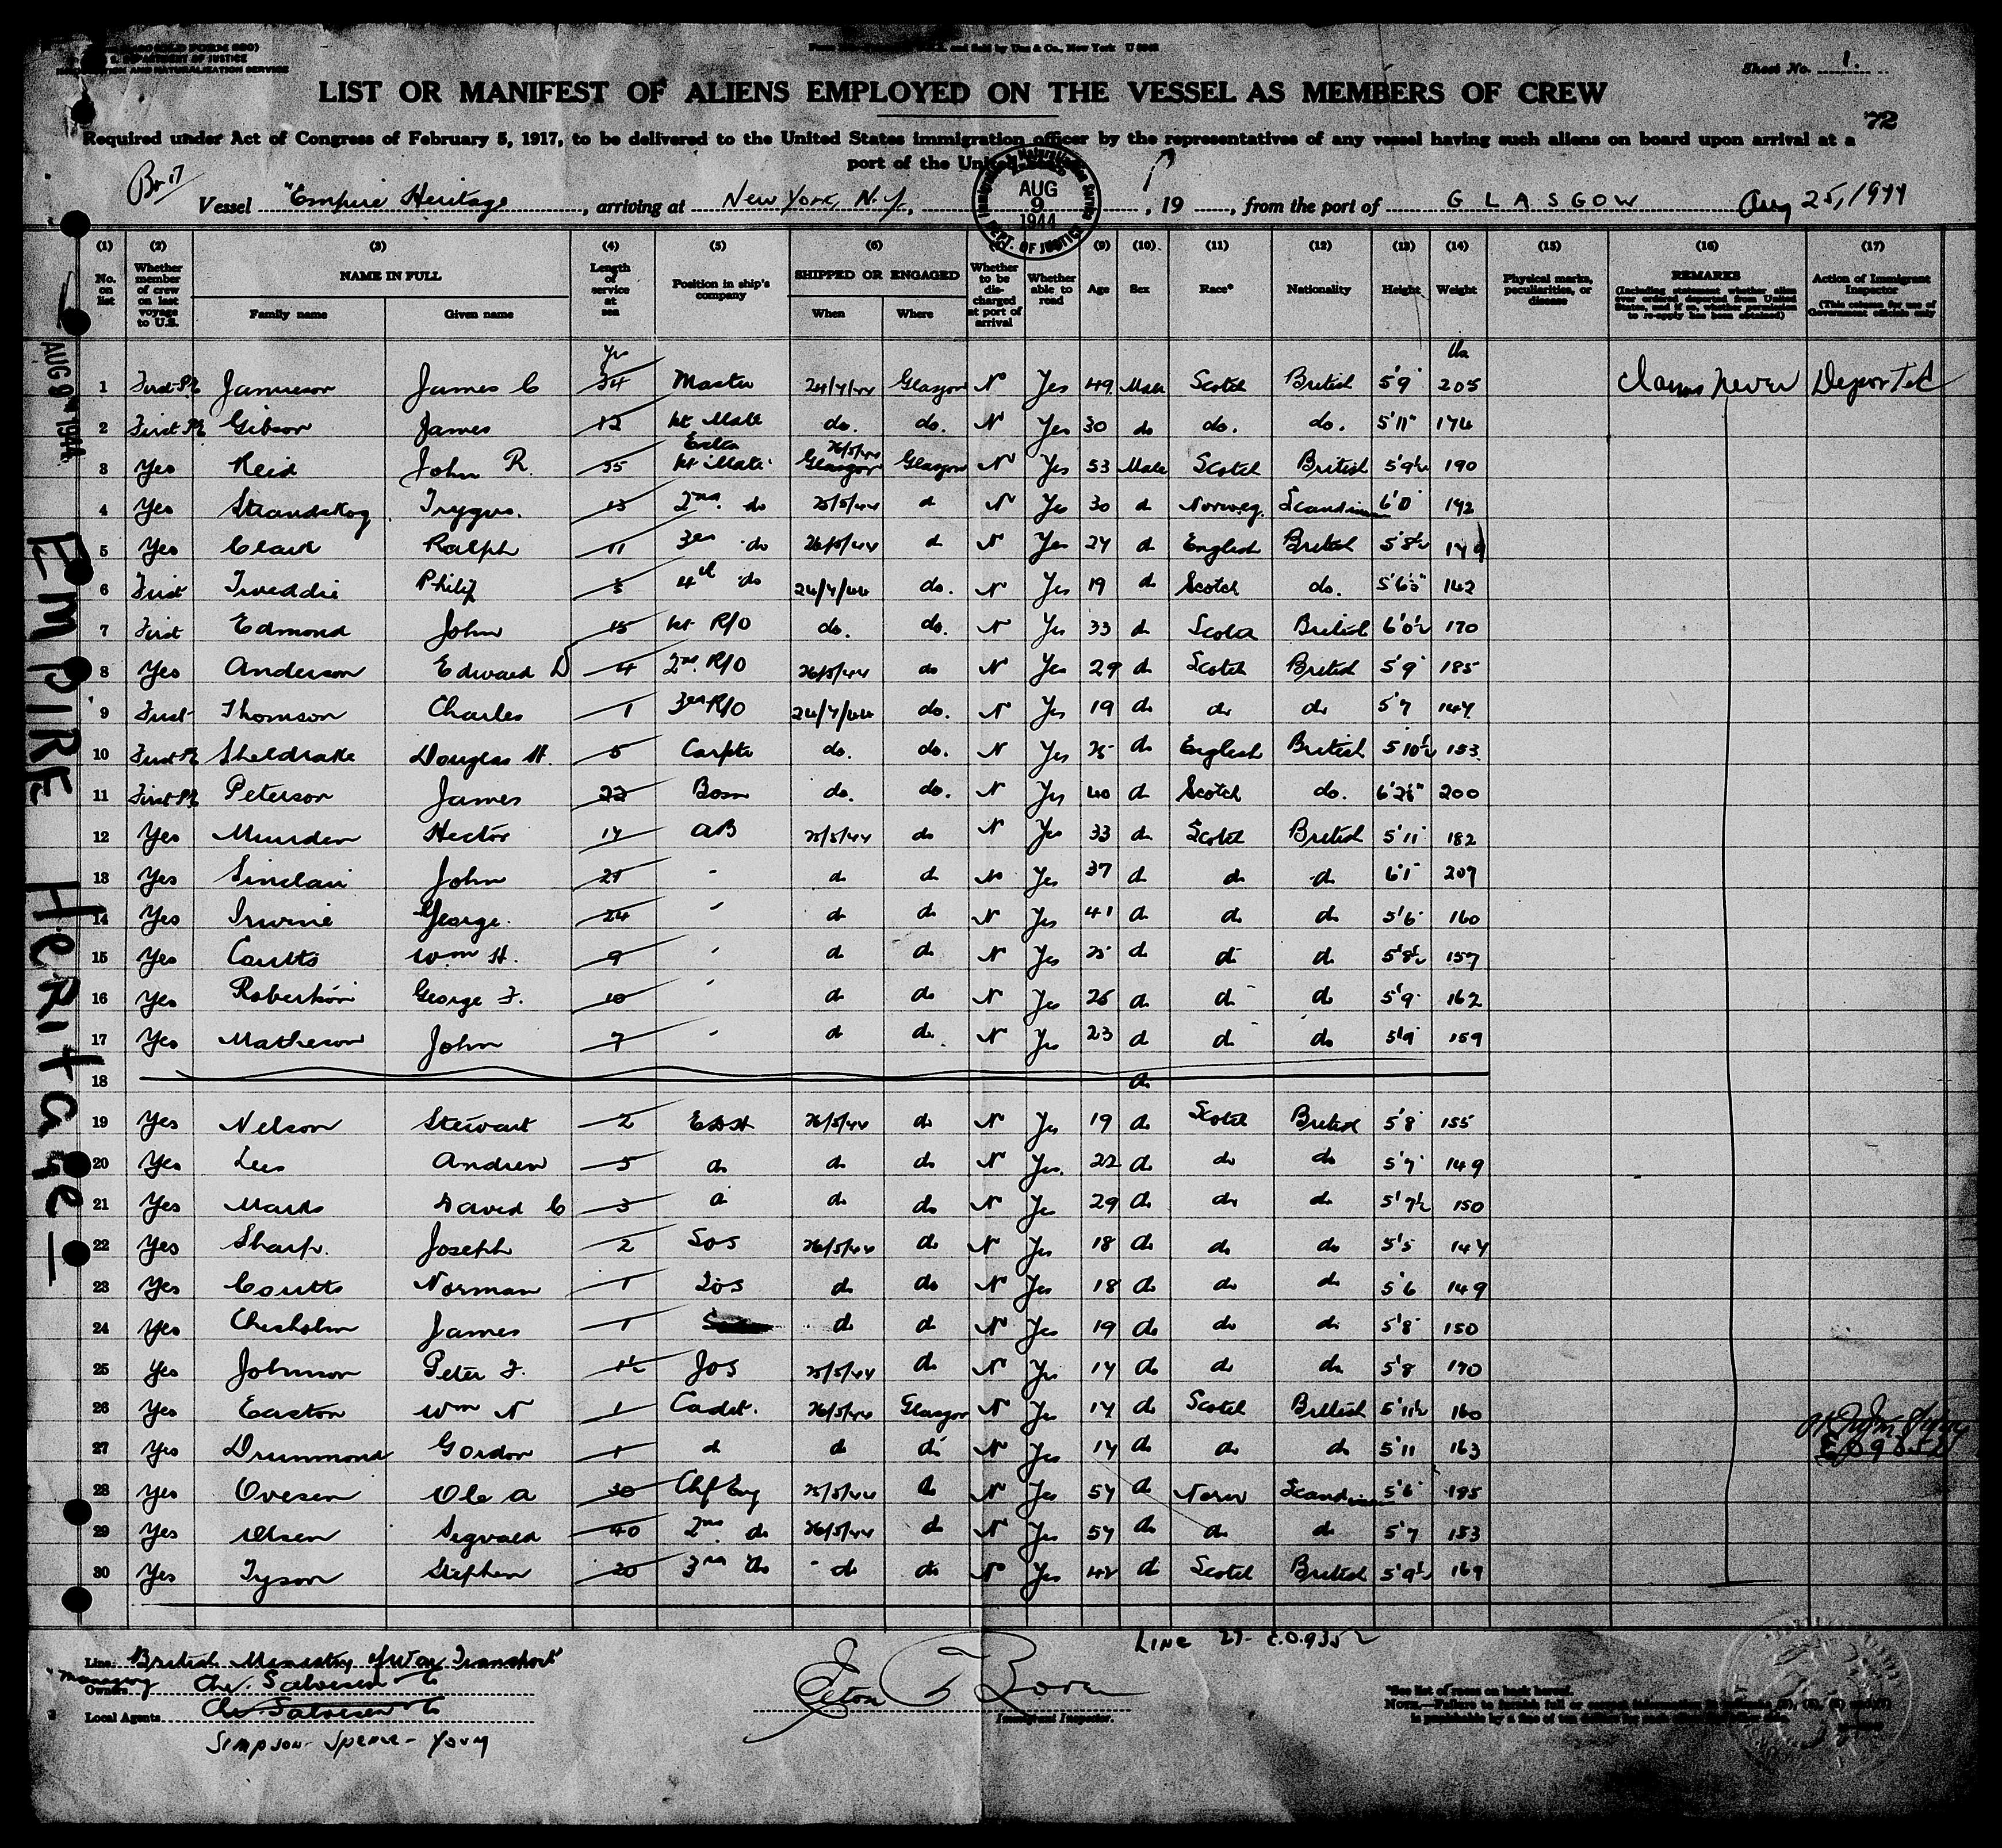 Sheet No. 1.
LIST OR MANIFEST OF ALIENS EMPLOYED ON THE VESSEL AS MEMBERS OF CREW
72
Required under Act of Congress of February 5, 1917, to be delivered to the United States immigration officer by the representatives of any vessel having such aliens on board upon arrival at a
port of the United
AUG 9 1944
DEPT. OF JUSTICE
Vessel "Empire Heritage, arriving at New York, N.Y., , 19 , from the port of GLASGOW Aug 25, 1944
(1) (2) (3) (4) (5) (6) (9) (10) (11) (12) (13) (14) (15) (16) (17)
No. on list Whether member of crew on last voyage to U.S. NAME IN FULL Length of service at sea Position in ship's company SHIPPED OR ENGAGED Whether to be discharged at port of arrival Whether able to read Age Sex Race* Nationality Height Weight Physical marks, peculiarities, or disease REMARKS Action of Immigrant Inspector
Family name Given name When Where
(Including statement whether alien ever ordered deported from United States, and if so, whether permission to re-apply has been obtained) (This column for use of Government officials only
1 Jamieson James C 34 Master 24/7/44 Glasgow No Yes 49 Male Scotch British 5'9" 205 Claims Never Deported
2 Gibson James 12 1st Mate do. do. N Yes 30 do do. do. 5'11" 174
3 Yes Reid John R. 35 Extra 1st Mate Glasgow 26/5/44 Glasgow N Yes 53 Male Scotch British 5'9½ 190
4 Yes Strandskog Trygve. 13 2nd do 25/5/44 d N Yes 30 d Norweg. Scandinavian 6'0" 192
5 Yes Clark Ralph 11 3rd do 26/5/44 d N Yes 24 d English British 5'8½
6 First Tweddie Philip 4th do 24/7/44 do. N Yes 19 d Scotch do. 162
7 First Edmond John 15 1st R/O do. do. N Yes 33 d Scotch British 6'0½ 170
8 Yes Anderson Edward D 4 2nd R/O 26/5/44 do N Yes 29 d Scotch British 5'9" 185
9 First Thomson Charles 1 3rd R/O 24/7/44 do. N Yes 19 do do do 5'7 147
10 Sheldrake Douglas H. 5 Carptr do. do. N Yes 25 do English British 5'10½ 153
11 Peterson James 22 Bosn do. do. N Yes 40 d Scotch do. 200
12 Yes Hector 17 AB 25/5/44 do N Yes 33 do Scotch British 5'11" 182
13 Yes Sinclair John 21 " d d No Yes 37 d d d 6'1" 209
14 Yes Irvine George. 24 " d d N Yes 41 d d d 5'6" 160
15 Yes Coutts Wm H. 9 " d d N Yes 25 d d d 5'8½ 157
16 Yes Robertson George F. 10 " d do N Yes 26 d d do 5'9" 162
17 Yes Matheson John 7 " d do N Yes 23 d d do 5'9" 159
18 do
19 Yes Nelson Stewart 2 EDH 26/5/44 do N Yes 19 d Scotch British 5'8" 155
20 Yes Lees Andrew 5 do do do N Yes. 22 d do do 5'7" 149
21 Yes Marks David C 3 d do do N Yes 29 do do do 5'7½ 150
22 Yes Sharp. Joseph 2 SOS 26/5/44 do N Yes 18 do do do 5'5 147
23 Yes Coutts Norman 1 SOS d do N Yes 18 do do do 5'6 149
24 Yes Chisholm James 1 d d N Yes 19 do do do 5'8" 150
25 Yes Johnson Peter F. 1½ JOS 25/5/44 do N Yes 17 do do do 5'8 170
26 Yes Easton Wm N 1 Cadet. 26/5/44 Glasgow N Yes 17 do Scotch British 5'11½ 160
27 Yes Drummond Gordon 1 d d d N Yes 17 d do do 5'11 163
28 Yes Ovesen Ole A 30 Chf Eng 25/5/44 do N Yes 57 d Norw Scandinavian 5'6" 195
29 Yes Olsen Sigvald 40 2nd do 26/5/44 d N Yes 57 do do do 5'7 153
30 Yes Tyson Stephen 20 3rd do do do No Yes 42 do Scotch British 5'9½ 169
AUG 9 1944
EMPIRE HERITAGE
LINE 27- E.O. 9352
Line British Ministry of War Transport
Managing Owners Chr. Salvesen & Co
Local Agents Chr Salvesen & Co
Simpson- Spence- Young
Immigrant Inspector.
*See list of races on back hereof.